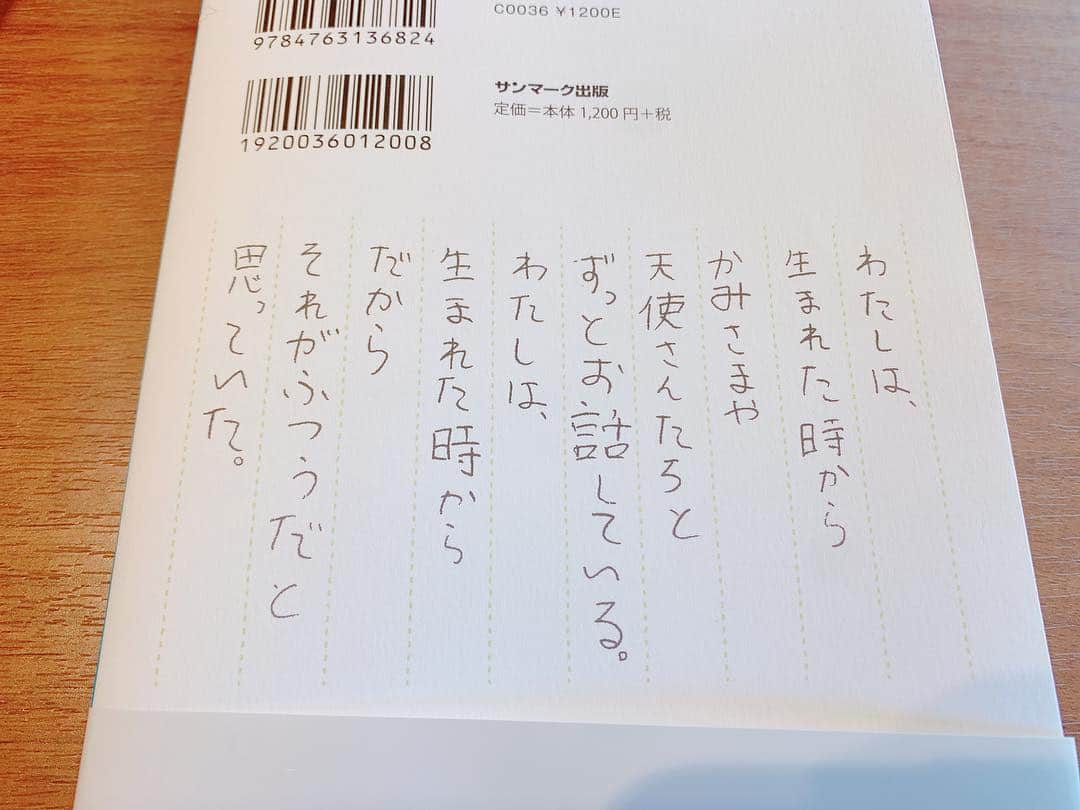 C0036 ¥1200E
9784763136824
サンマーク出版
定価＝本体 1,200 円＋税
1920036012008
わたしは、
生まれた時から
かみさまや
天使さんたちと
ずっとお話している。
わたしは、
生まれた時から
だから
それがふつうだと
思っていた。